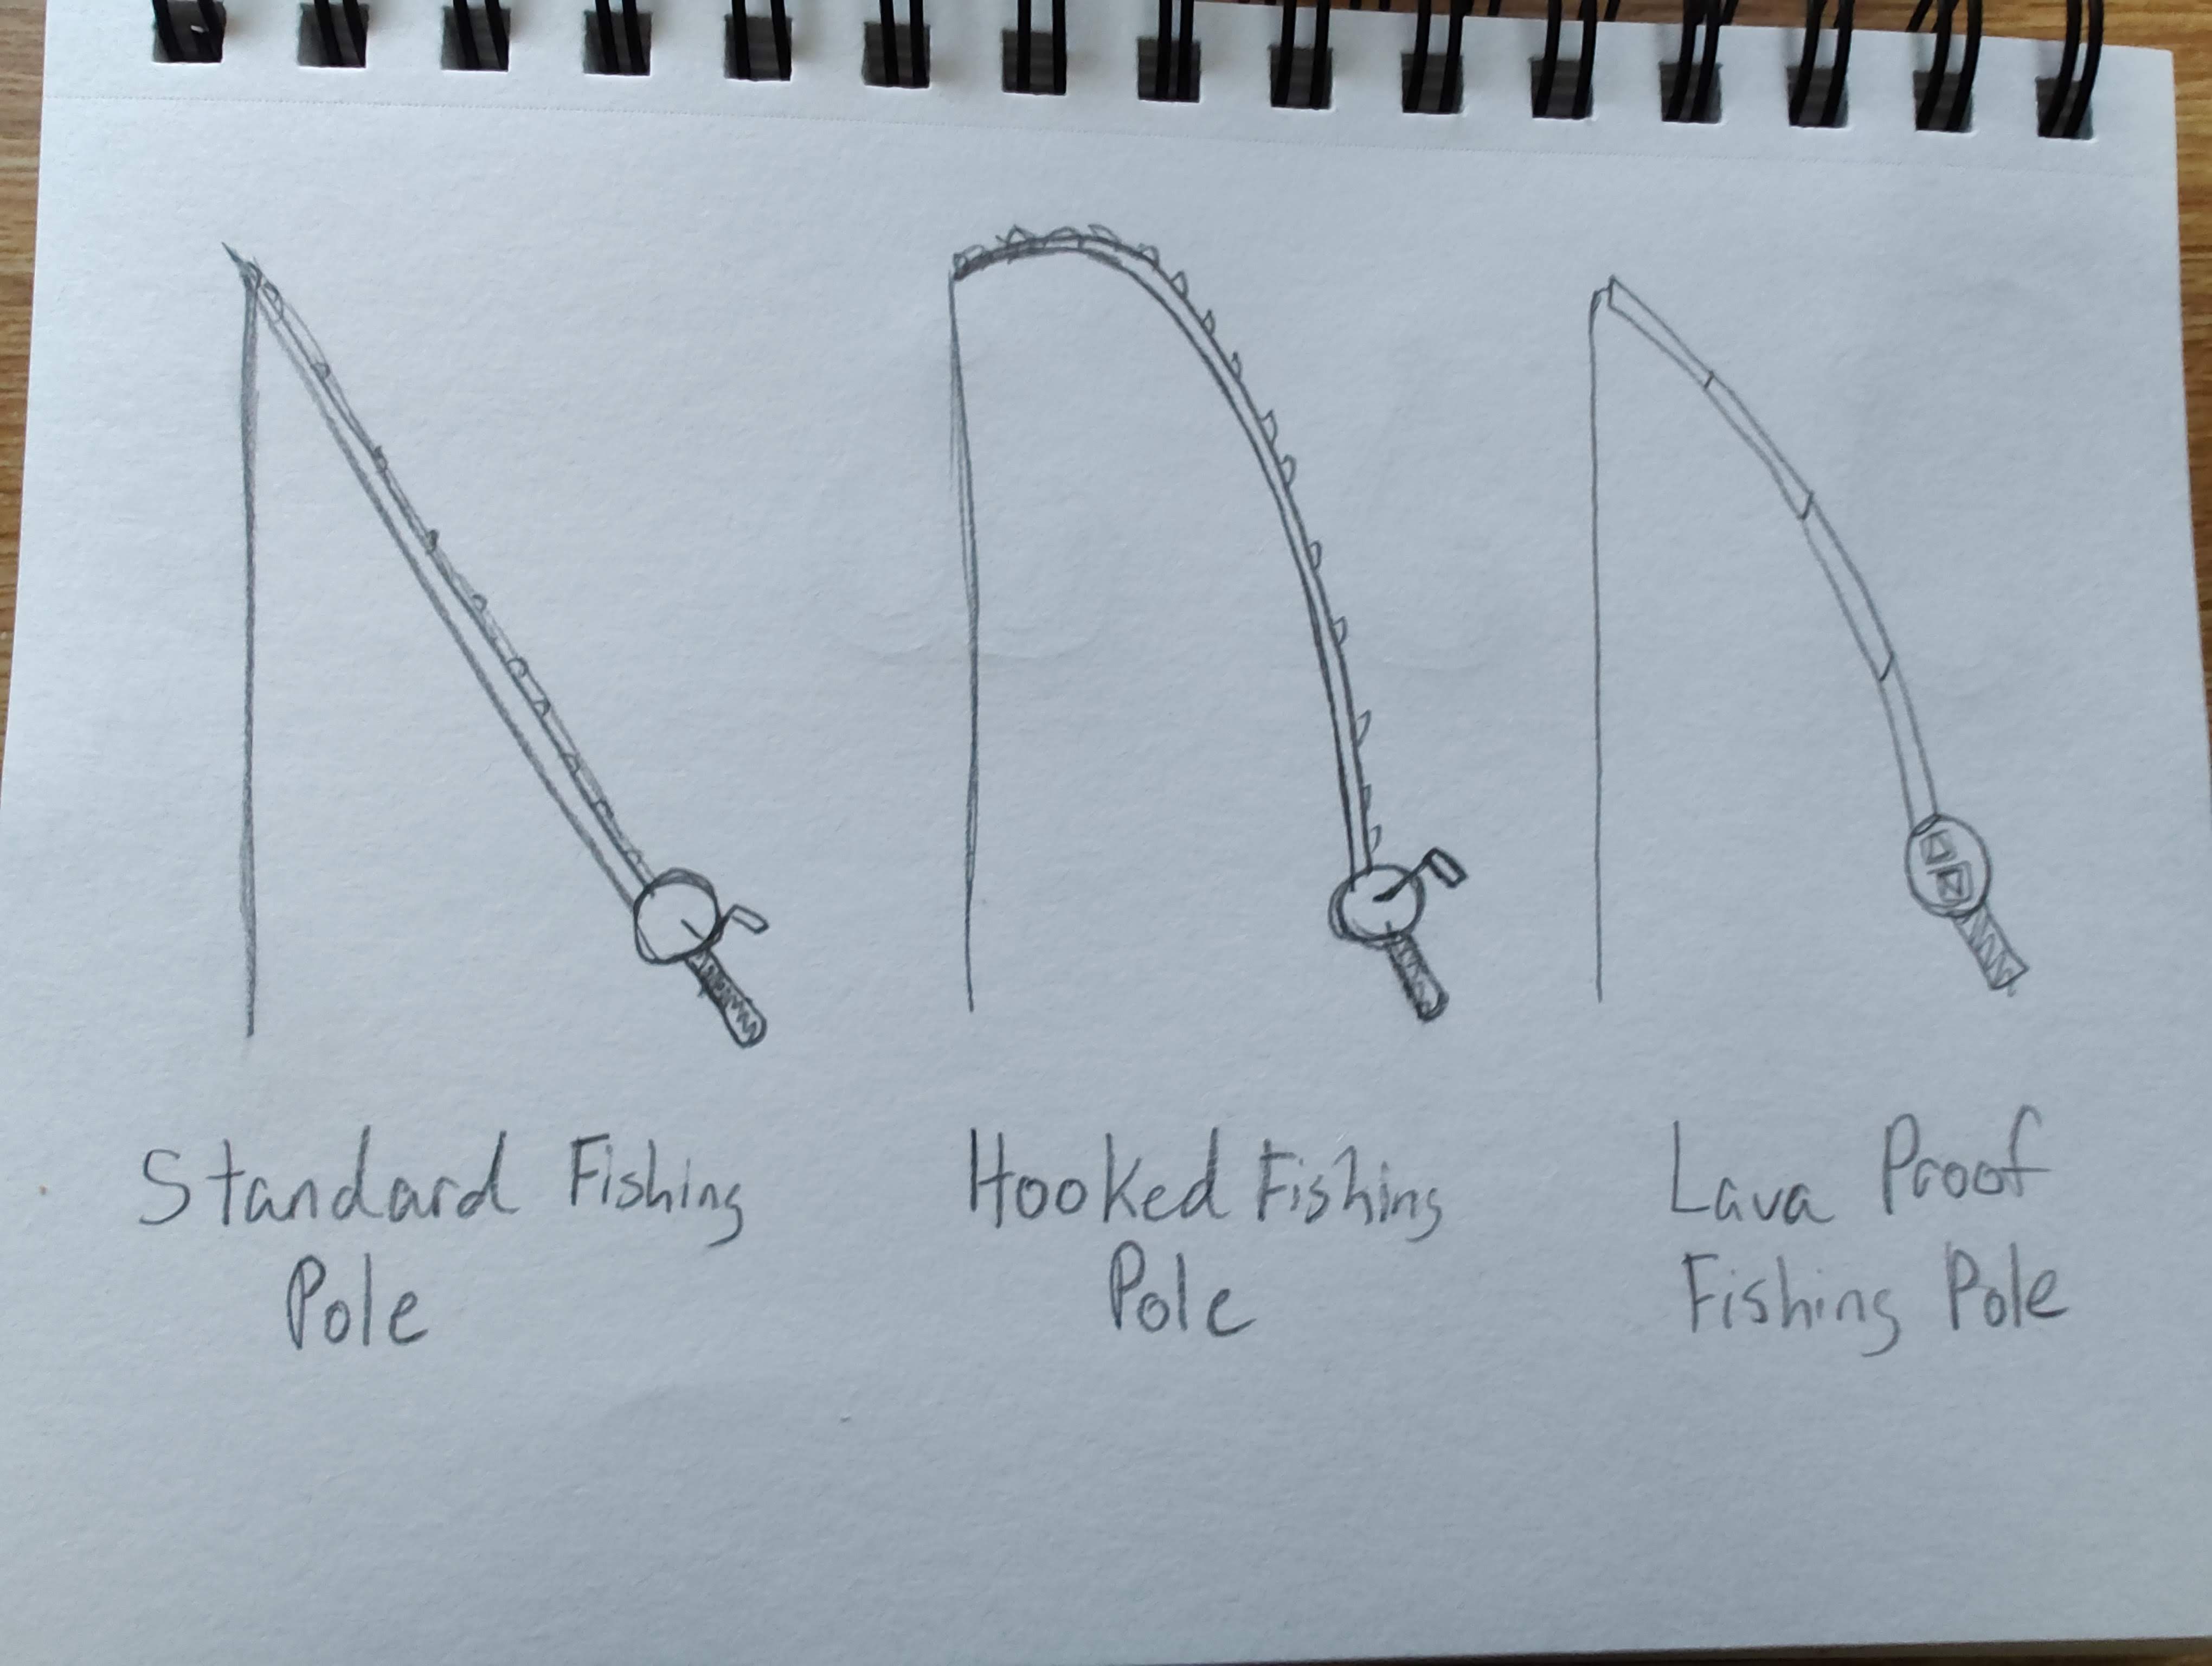 Standard Fishing
Pole
Hooked Fishing
Pole
Lava Proof
Fishing Pole